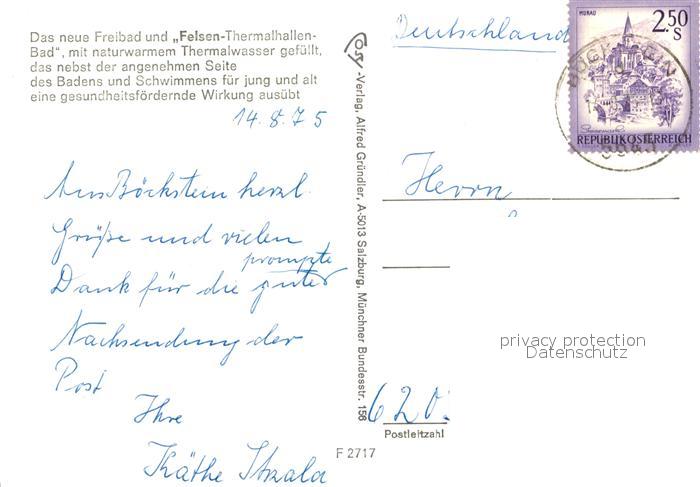 Das neue Freibad und „Felsen-Thermalhallen-
Bad“, mit naturwarmem Thermalwasser gefüllt,
das nebst der angenehmen Seite
des Badens und Schwimmens für jung und alt
eine gesundheitsfördernde Wirkung ausübt
14.8.75
Aus Böckstein herzl.
Grüße und vielen
prompte
Dank für die guter
Nachsendung der
Post
Ihre
Käthe
Verlag, Alfred Gründler, A-5013 Salzburg, Münchner Bundesstr. 156
F 2717
Deutschland
MURAU
2.50
S
REPUBLIK ÖSTERREICH
Herrn
privacy protection
Datenschutz
620
Postleitzahl